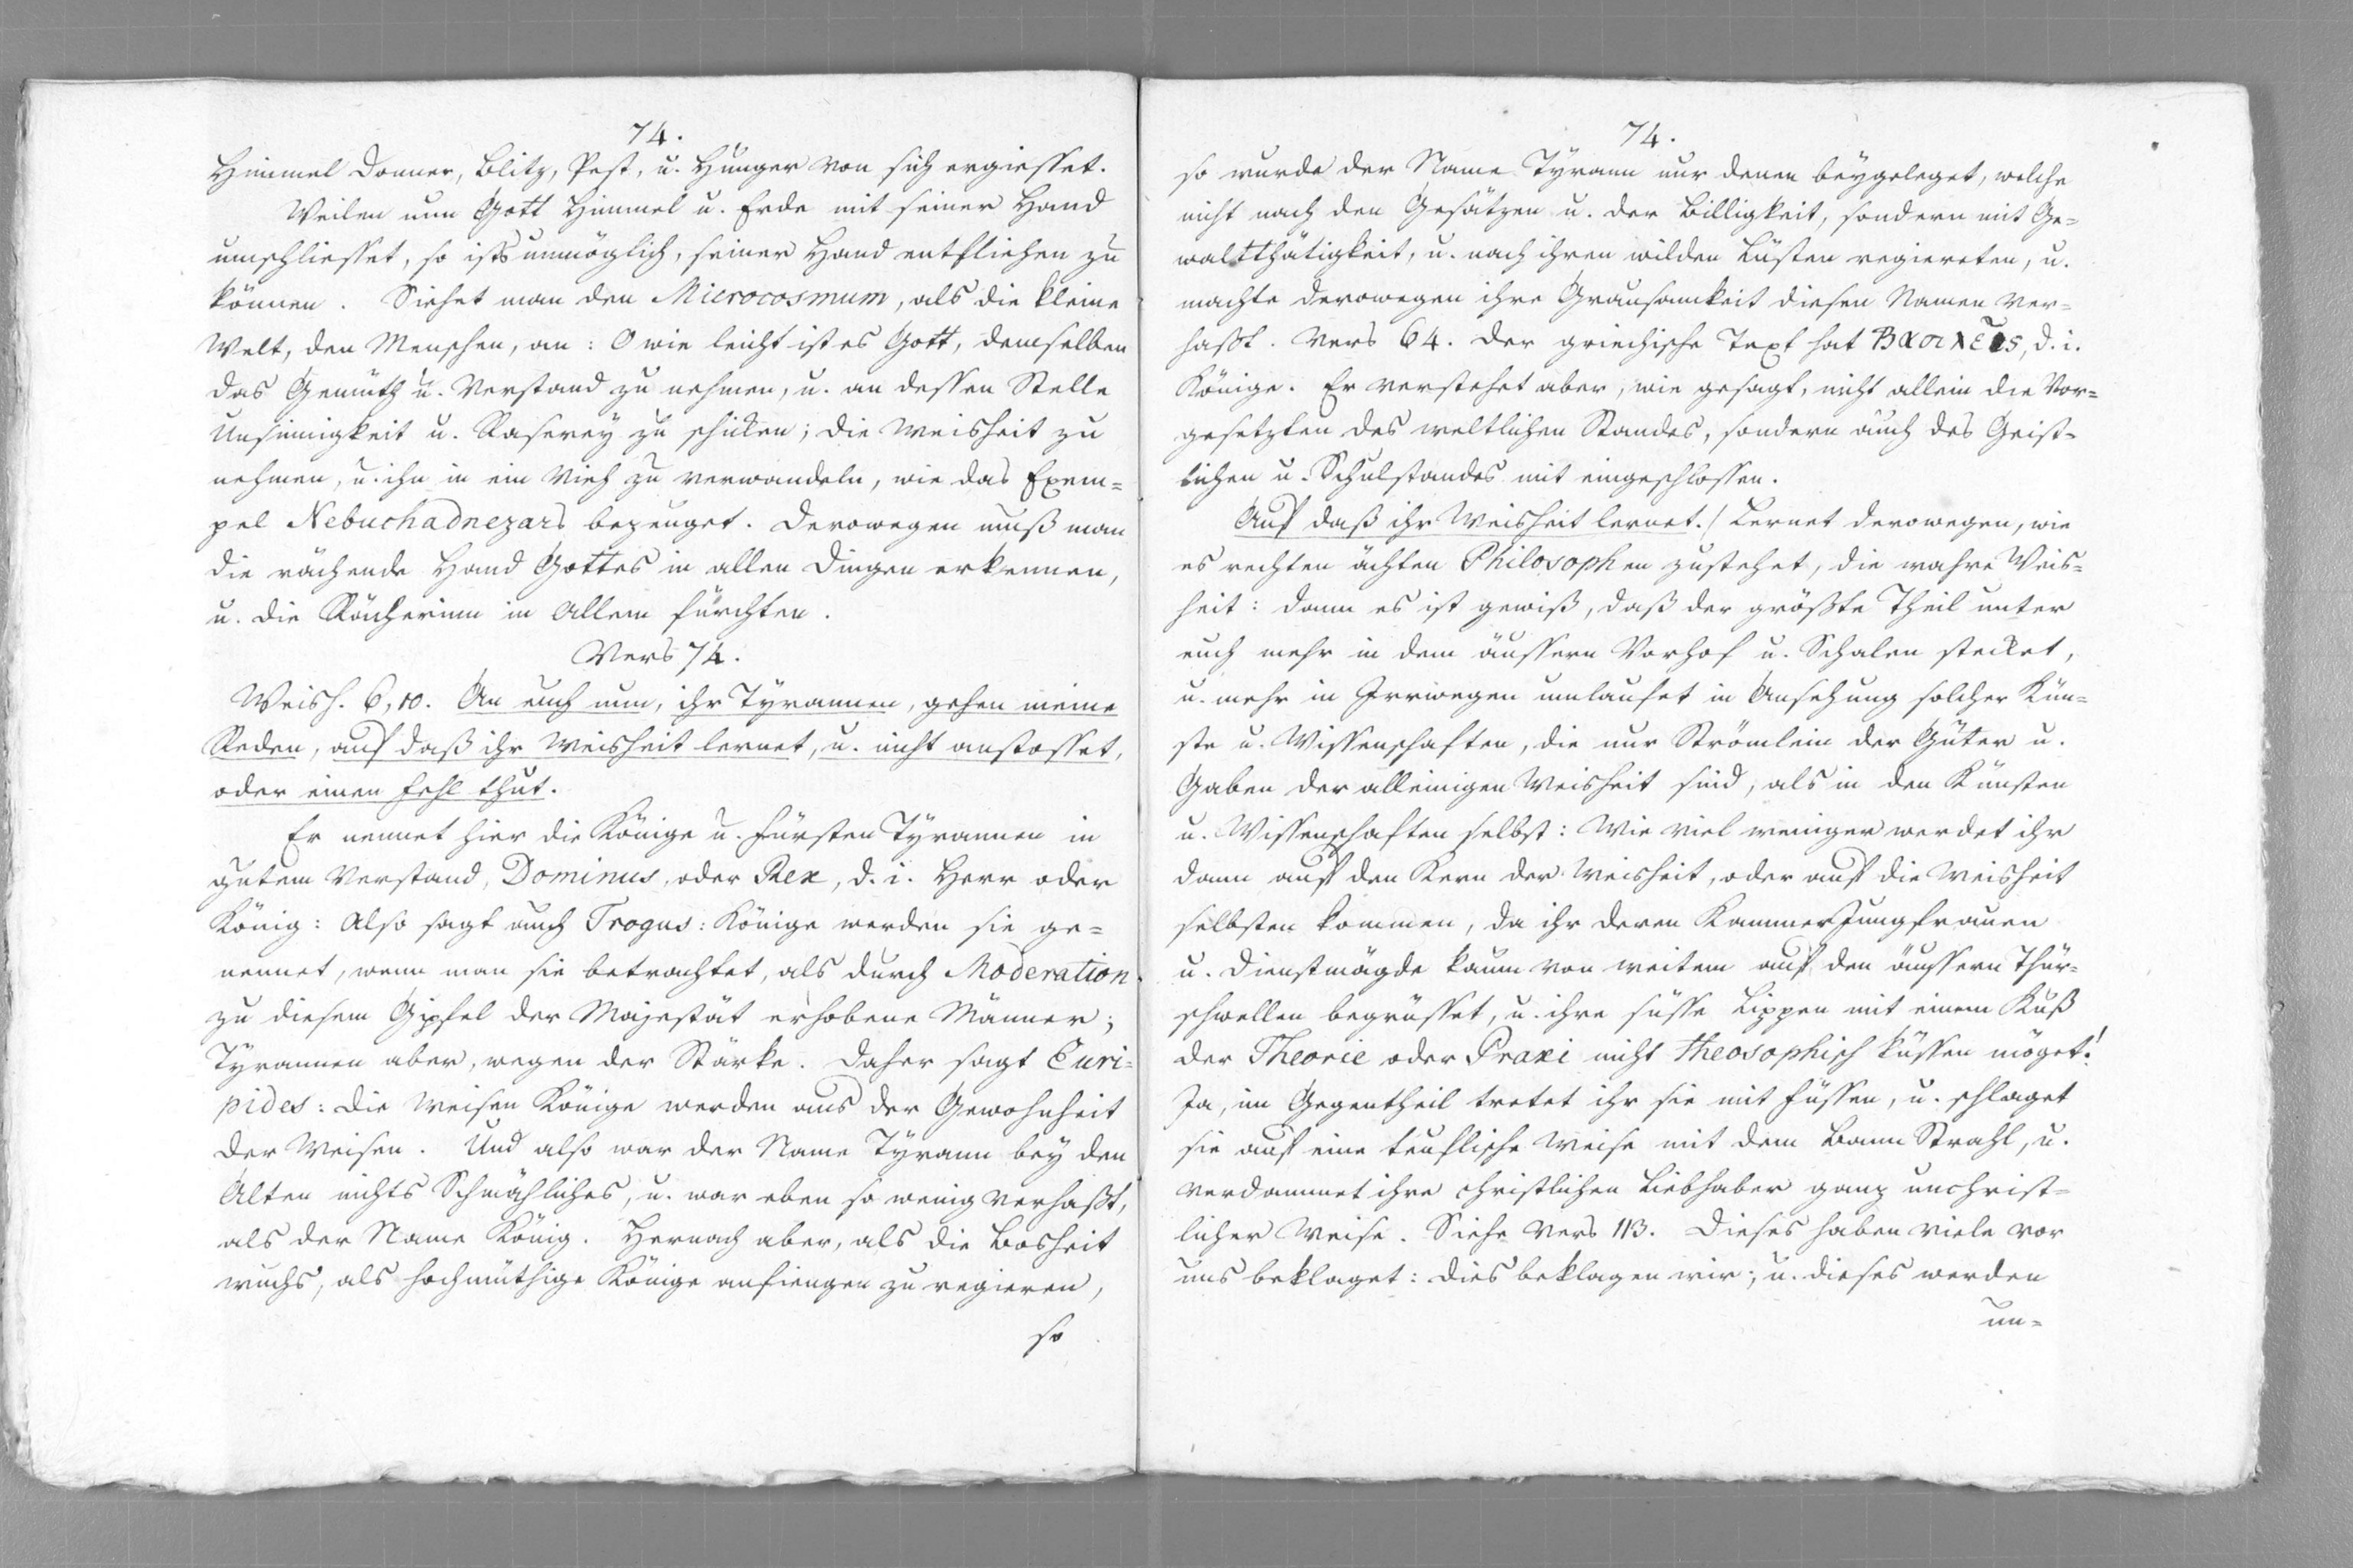 74.
Himmel Donner, Blitz, Pest, u. Hunger von sich ergiesset.
Weilen nun Gott Himmel u. Erde mit seiner Hand
umschliesset, so ists unmöglich, seiner Hand entfliehen zu
können. Siehet man den Microcosmum, als die kleine
Welt, den Menschen, an: O wie leicht ist es Gott, demselben
das Gemüth u. Verstand zu nehmen, u. an dessen Stelle
Unsinnigkeit u. Raserey zu schicken; die Weisheit zu
nehmen, u. ihn in ein Vieh zu verwandeln, wie das Exem=
pel Nebuchadnezars bezeuget. Derowegen muß man
die rächende Hand Gottes in allen Dingen erkennen,
u. die Rächerinn in Allem fürchten.
Vers 74.
Weish. 6, 10. An euch nun, ihr Tyrannen, gehen meine
Reden, auf daß ihr Weisheit lernet, u. nicht anstosset,
oder einen Fehl thut.
Er nennet hier die Könige u. Fürsten Tyrannen in
gutem Verstand, Dominus, oder Rex, d. i. Herr oder
König: Also sagt auch Trogus: Könige werden sie ge=
nennet, wenn man sie betrachtet, als durch Moderation
zu diesem Gipfel der Majestät erhobene Männer;
Tyrannen aber, wegen der Stärke. Daher sagt Euri=
pides: Die Weisen Könige werden aus der Gewohnheit
der Weisen. Und also war der Name Tyrann bey den
Alten nichts Schmähliches, u. war eben so wenig verhaßt,
als der Name König. Hernach aber, als die Bosheit
wuchs, als hochmüthige Könige anfiengen zu regieren,
so
74.
so wurde der Name Tyrann nur denen beygeleget, welche
nicht nach den Gesätzen u. der Billigkeit, sondern mit Ge=
waltthätigkeit, u. nach ihren wilden Lüsten regiereten, u.
machte derowegen ihre Grausamkeit diesen Namen ver=
haßt. Vers 64. Der griechische Text hat Βασιλεῖς, d. i.
Könige. Er verstehet aber, wie gesagt, nicht allein die Vor=
gesetzten des weltlichen Standes, sondern auch des Geist=
lichen u. Schulstandes mit eingeschlossen.
Auf daß ihr Weisheit lernet.) Lernet derowegen, wie
es rechten ächten Philosophen zustehet, die wahre Weis=
heit: dann es ist gewiß, daß der größte Theil unter
euch mehr in dem äussern Vorhof u. Schalen stecket,
u. mehr in Irrwegen umlaufet in Ansehung solcher Kün=
ste u. Wissenschaften, die nur Strömlein der Güter u.
Gaben der alleinigen Weisheit sind, als in den Künsten
u. Wissenschaften selbst: Wie viel weniger werdet ihr
dann auf den Kern der Weisheit, oder auf die Weisheit
selbsten kommen, da ihr deren KammerJungfrauen
u. Dienstmägde kaum von weitem auf den äussern Thür=
schwellen begrüsset, u. ihre süsse Lippen mit einem Kuß
der Theorie oder Praxi nicht theosophisch küssen möget!
Ja, im Gegentheil tretet ihr sie mit Füssen, u. schlaget
sie auf eine teuflische Weise mit dem Bann Strahl, u.
verdammet ihre christlichen Liebhaber ganz unchrist=
licher Weise. Siehe Vers 113. Dieses haben viele vor
uns beklaget: dies beklagen wir; u. dieses werden
un=